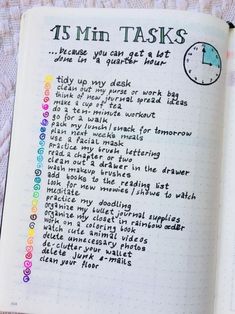 15 Min TASKS
...because you can get a lot
done in a quarter hour
tidy up my desk
clean out my purse or work bag
think of new journal spread ideas
make a cup of tea
do a ten-minute workout
go for a walk
pack my lunch/snack for tomorrow
plan next weeks meals
use a facial mask
practice my brush lettering
read a chapter or two
clean out a drawer in the drawer
wash makeup brushes
add books to the reading list
look for new movies/shows to watch
meditate
practice my doodling
organize my bullet journal supplies
organize my closet in rainbow order
work on a coloring book
watch cute animal videos
delete unnecessary photos
de-clutter your wallet
delete junk e-mails
clean your floor